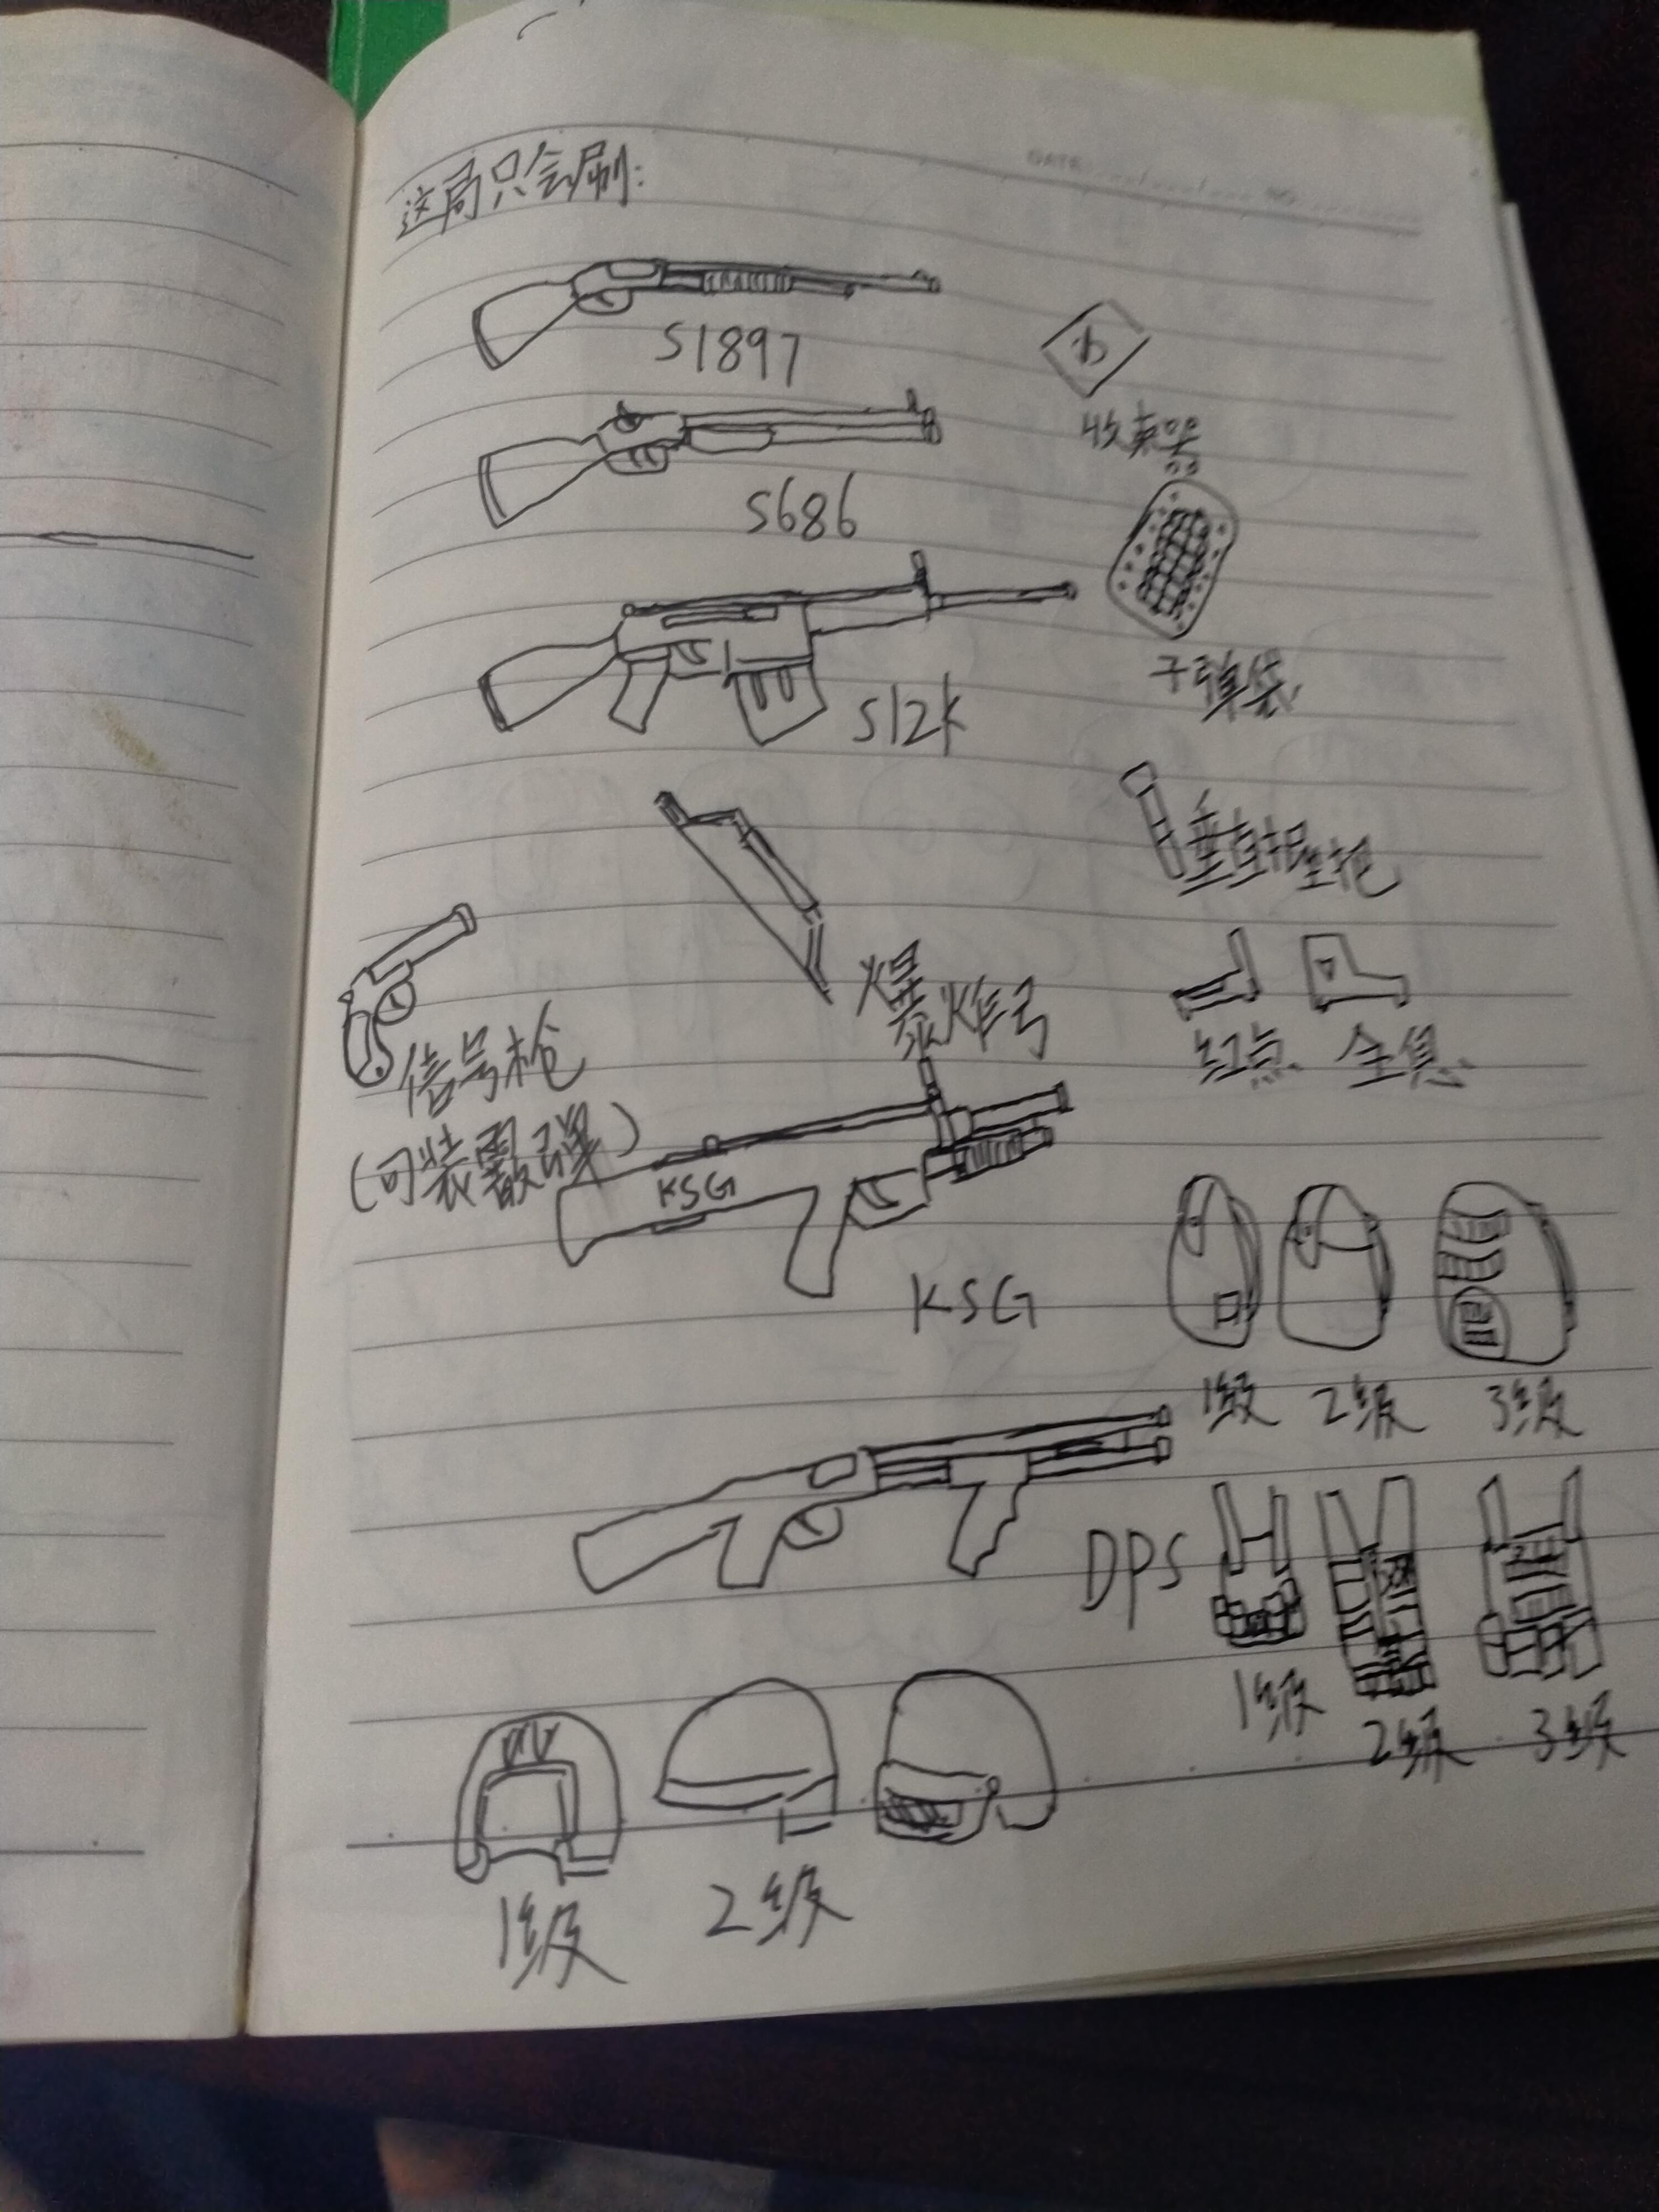 这局只会刷:
S1897
收束器
S686
子弹袋
S12K
垂直握把
爆炸弓
红点 全息
信号枪
(可装霰弹)
KSG
KSG
1级 2级 3级
DPS
1级 2级 3级
1级 2级